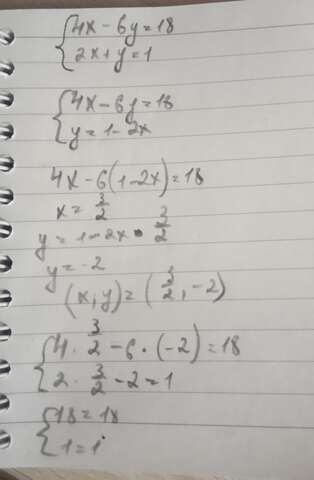 {4x - 6y = 18
2x + y = 1
{4x - 6y = 18
y = 1 - 2x
4x - 6(1 - 2x) = 18
x = 3/2
y = 1 - 2x • 3/2
y = -2
(x, y) = (3/2, -2)
{4 · 3/2 - 6 · (-2) = 18
2 · 3/2 - 2 = 1
{18 = 18
1 = 1